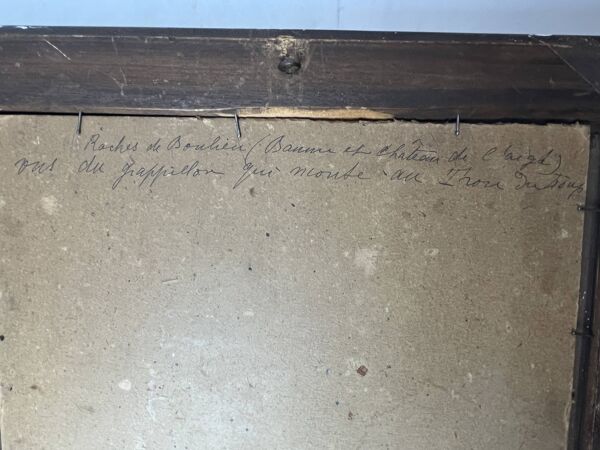 Roches de Boulieu (Baume et château de l'aigle)
vus du grappillon qui monte au Trou du loup